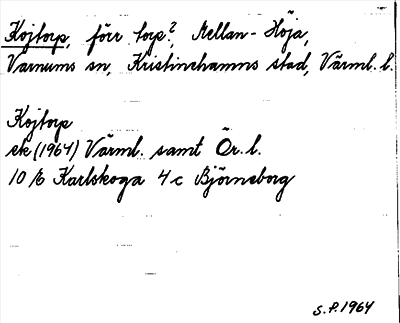 Kojtorp, förr torp?, Mellan-Höja,
Varnums sn, Kristinehamns stad, Värml. l.
Kojtorp
ek (1964) Värml. samt Ör. l.
10 /6 Karlskoga 4c Björneborg
S.P. 1964